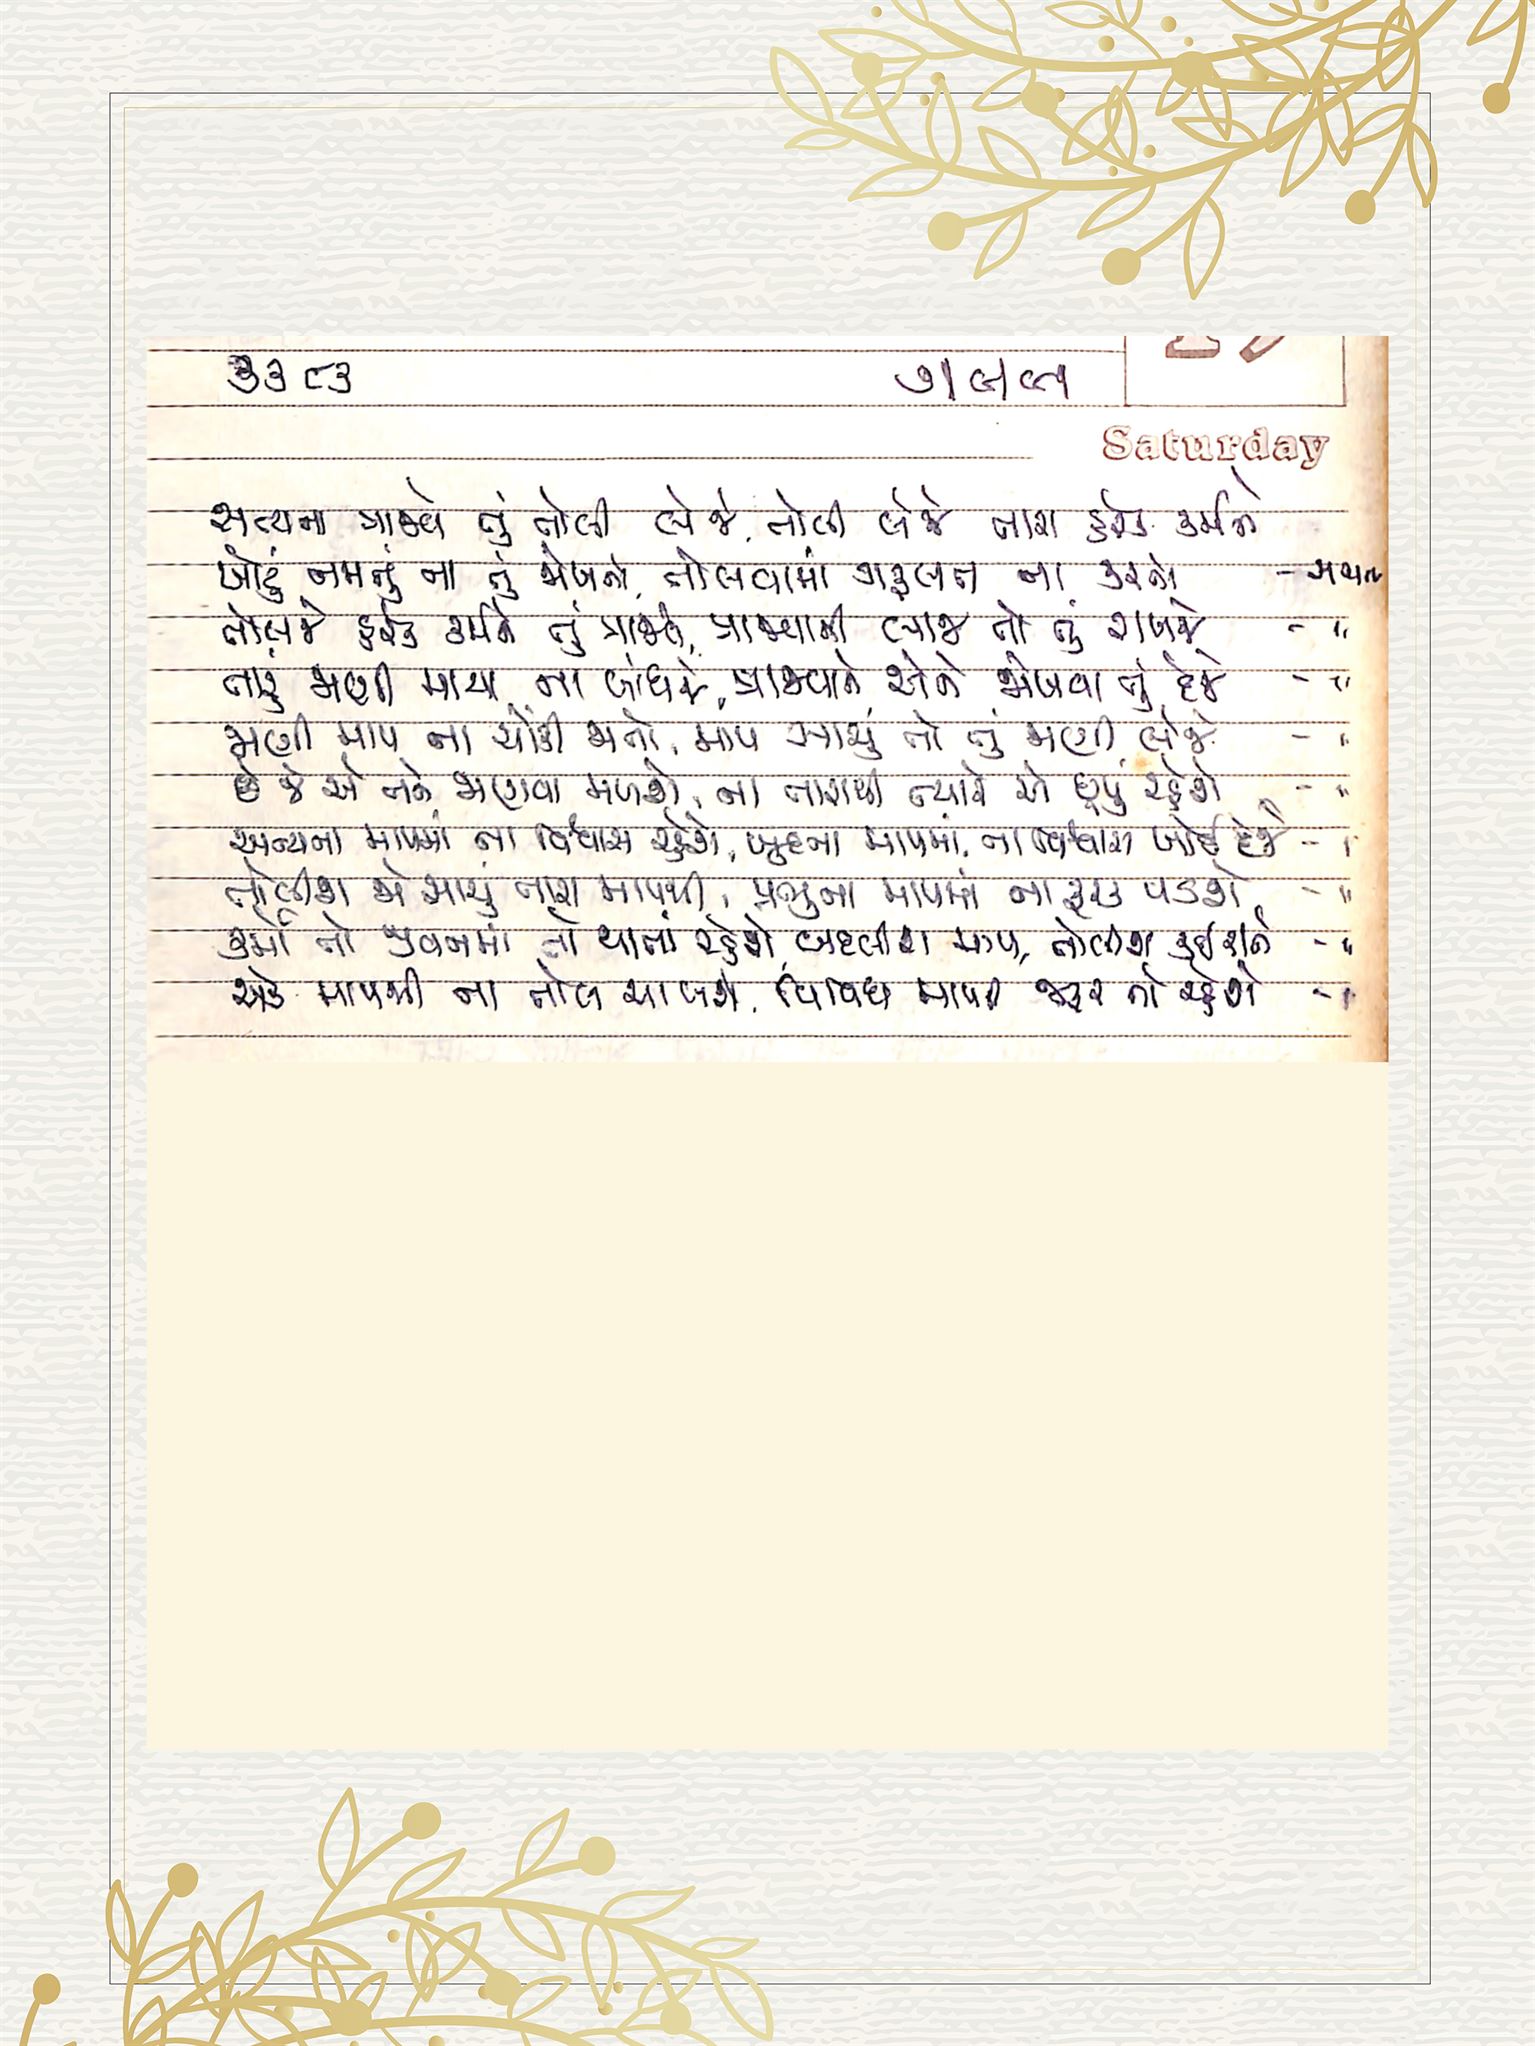 ૩૩૮૩
૭/૯/૯૧
Saturday
સત્યના ત્રાજવે તું તોલી લેજે, તોલી લેજે તારા હરેક કર્મને
ખોટું નમતું ના તું જોખતો, તોલવામાં ગફલત ના કરતો - સત્યના
તોલજે હરેક કર્મને તું ત્રાજવે, ત્રાજવાની લાજ તો તું રાખજે - "
તારું ગણી માયા ના બાંધજે, ત્રાજવાને એને જોખવા તું દેજે - "
ગણી માપ ના ચોંકી જાતો, માપ સાચું તો તું ગણી લેજે - "
છે જે એ તને જાણવા મળશે, ના તારાથી ત્યારે એ છૂપું રહેશે - "
અન્યના માપમાં ના વિશ્વાસ રહેશે, ખુદના માપમાં ના વિશ્વાસ ખોઈ દેજે - "
તોલીશ જો સાચું તારા માપથી, પ્રભુના માપમાં ના ફરક પડશે - "
કર્મો તો જીવનમાં તો થાતાં રહેશે, બદલીશ માપ, તોલીશ કઈ રીતે - "
એક માપથી ના તોલ ચાલશે, વિવિધ માપની જરૂર તો રહેશે - "